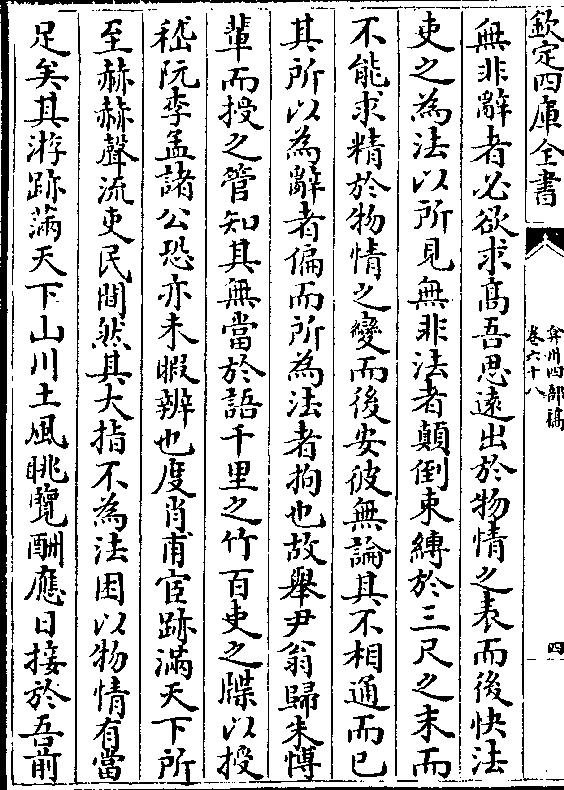 欽定四庫全書
弇州四部稿
卷六十八
四
無非辭者必欲求高吾思遠出於物情之表而後快法
吏之為法以所見無非法者顛倒束縛於三尺之末而
不能求精於物情之變而後安彼無論其不相通而已
其所以為辭者偏而所為法者拘也故舉尹翁歸朱博
輩而授之管知其無當於語千里之竹百吏之牒以授
嵇阮李孟諸公恐亦未暇辨也度肖甫宦跡滿天下所
至赫赫聲流吏民間然其大指不為法困以物情有當
足矣其游跡滿天下山川土風眺覽酬應日接於吾前